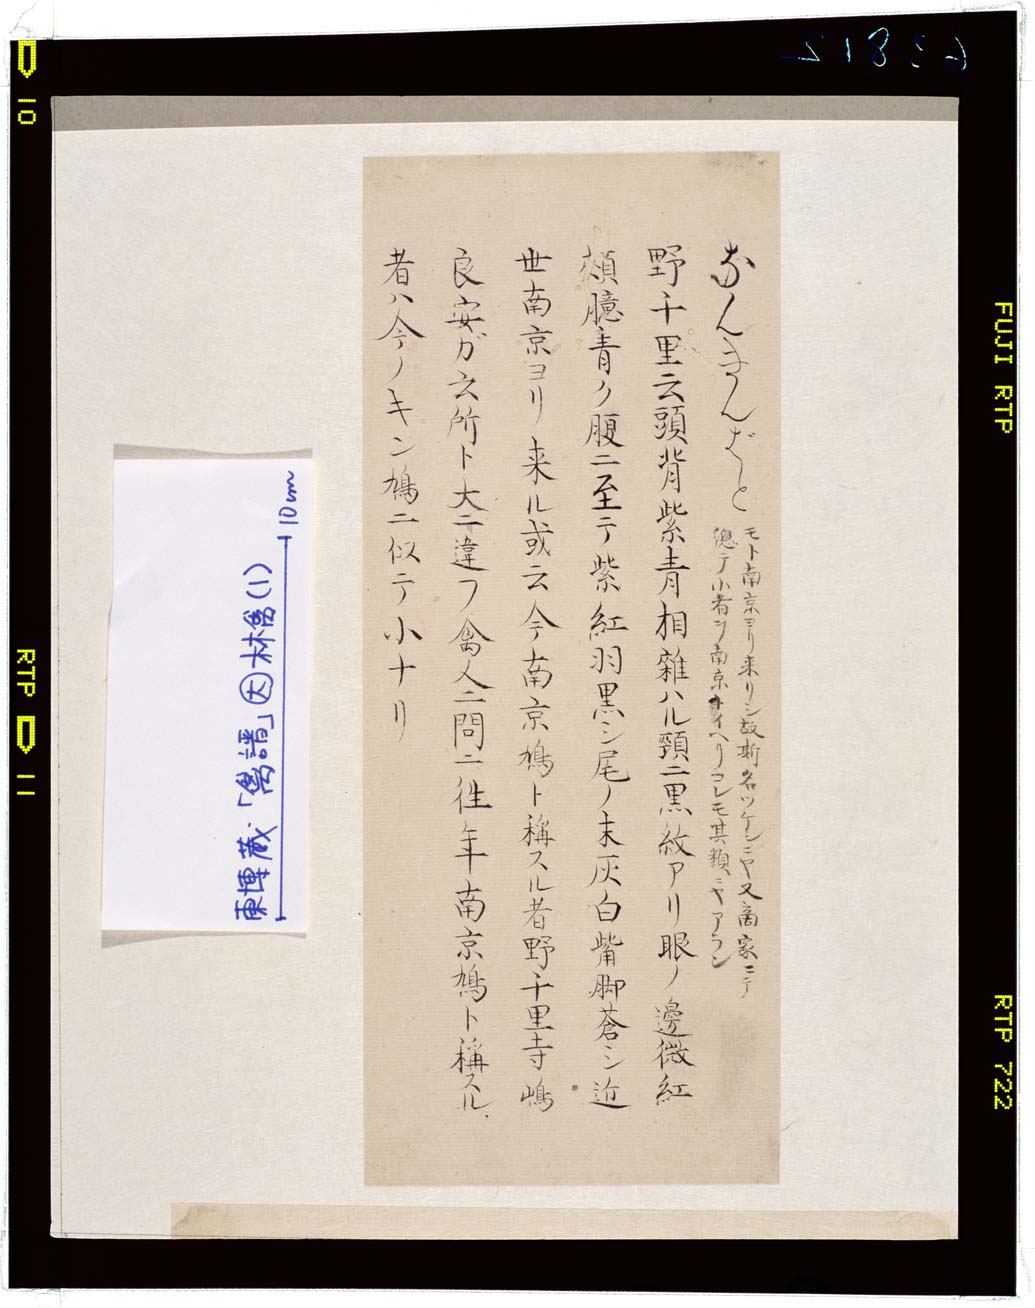 なんきんばと
モト南京ヨリ来リシ故斯名ツケシニヤ又商家ニテ
總テ小者ヲ南京トイヘリコレモ其類ニヤアラン
野千里云頭背紫青相雜ハル頸ニ黒紋アリ眼ノ邊微紅
頬臆青ク腹ニ至テ紫紅羽黒シ尾ノ末灰白觜脚蒼シ近
世南京ヨリ来ル或云今南京鳩ト稱スル者野千里寺嶋
良安ガ云所ト大ニ違フ禽人ニ問ニ徃年南京鳩ト稱スル
者ハ今ノキン鳩ニ似テ小ナリ
東博蔵・「禽譜」㊅林禽(1)
10cm
10
RTP
11
FUJI RTP
RTP 722